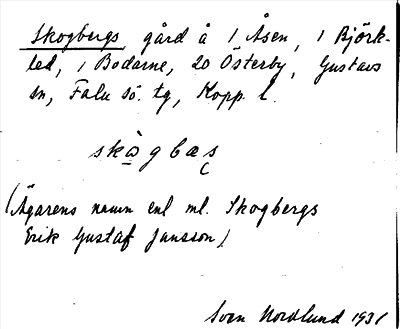 Skogbergs, gård å 1 Åsen, 1 Björk-
led, 1 Bodarne, 20 Österby, Gustavs
sn, Falu sö. tg, Kopp. l.
skògbæs
(Ägarens namn enl ml. Skogbergs
Erik Gustaf Jansson)
Sven Nordlund 1931